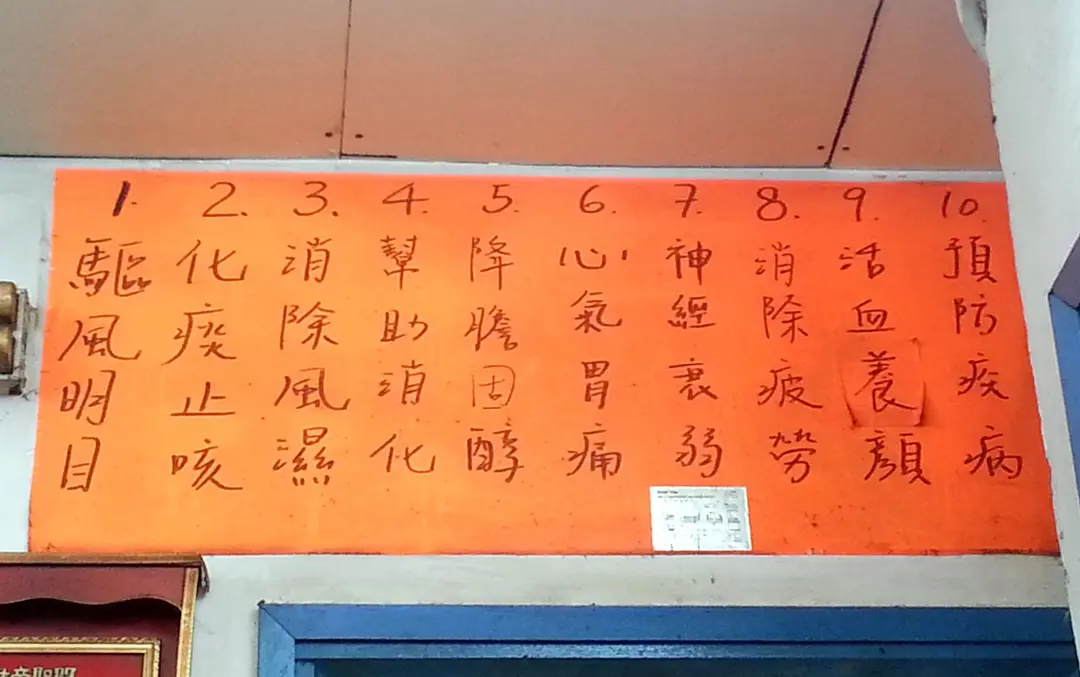 1. 驅風明目
2. 化痰止咳
3. 消除風濕
4. 幫助消化
5. 降膽固醇
6. 心氣胃痛
7. 神經衰弱
8. 消除疲勞
9. 活血養顏
10. 預防疾病